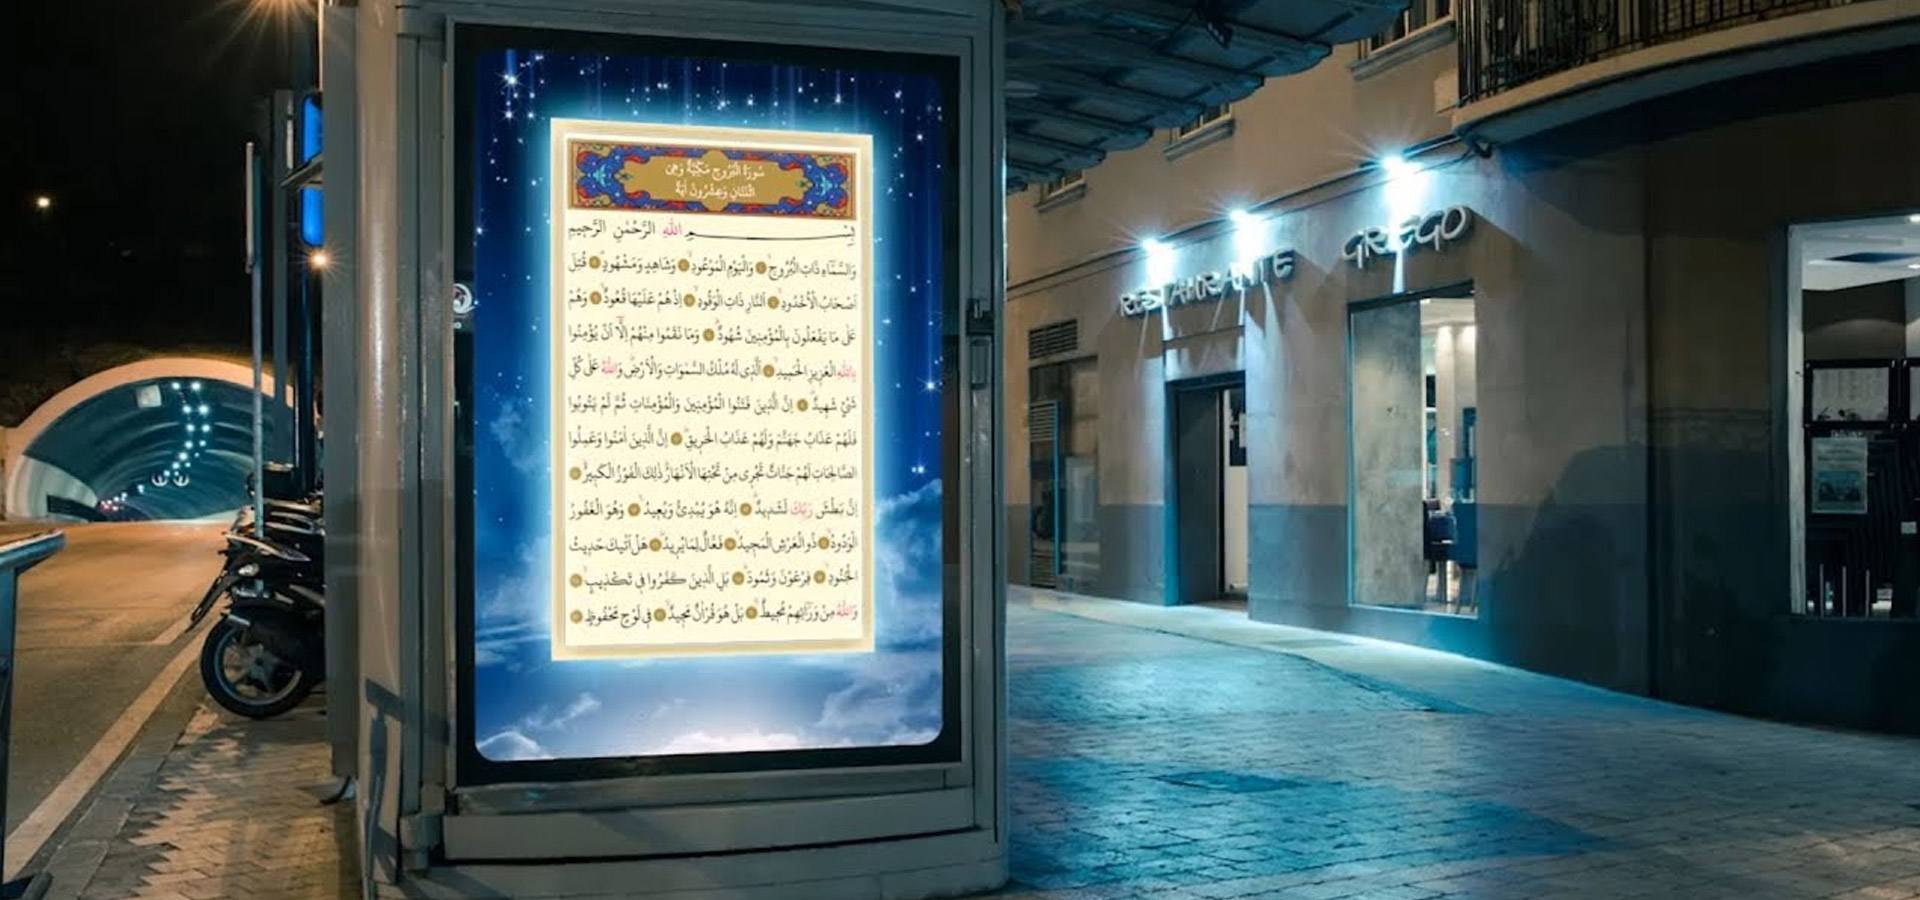 سُورَةُ الْبُرُوجِ مَكِّيَّةٌ وَهِيَ
اثْنَتَانِ وَعِشْرُونَ اٰيَةً
بِسْمِ اللّٰهِ الرَّحْمٰنِ الرَّحِيمِ
وَالسَّمَٓاءِ ذَاتِ الْبُرُوجِۙ وَالْيَوْمِ الْمَوْعُودِۙ وَشَاهِدٍ وَمَشْهُودٍۜ قُتِلَ
اَصْحَابُ الْاُخْدُودِۙ اَلنَّارِ ذَاتِ الْوَقُودِۙ اِذْ هُمْ عَلَيْهَا قُعُودٌۙ وَهُمْ
عَلٰى مَا يَفْعَلُونَ بِالْمُؤْمِنِينَ شُهُودٌۜ وَمَا نَقَمُوا مِنْهُمْ اِلَّٓا اَنْ يُؤْمِنُوا
بِاللّٰهِ الْعَزِيزِ الْحَمِيدِۙ اَلَّذِى لَهُ مُلْكُ السَّمٰوَاتِ وَالْاَرْضِۜ وَاللّٰهُ عَلٰى كُلِّ
شَيْءٍ شَهِيدٌۜ اِنَّ الَّذِينَ فَتَنُوا الْمُؤْمِنِينَ وَالْمُؤْمِنَاتِ ثُمَّ لَمْ يَتُوبُوا
فَلَهُمْ عَذَابُ جَهَنَّمَ وَلَهُمْ عَذَابُ الْحَرِيقِۜ اِنَّ الَّذِينَ اٰمَنُوا وَعَمِلُوا
الصَّالِحَاتِ لَهُمْ جَنَّاتٌ تَجْرِى مِنْ تَحْتِهَا الْاَنْهَارُۜ ذٰلِكَ الْفَوْزُ الْكَبِيرُۜ
اِنَّ بَطْشَ رَبِّكَ لَشَدِيدٌۜ اِنَّهُ هُوَ يُبْدِئُ وَيُعِيدُۚ وَهُوَ الْغَفُورُ
الْوَدُودُۙ ذُو الْعَرْشِ الْمَجِيدُۙ فَعَّالٌ لِمَا يُرِيدُۜ هَلْ اَتٰيكَ حَدِيثُ
الْجُنُودِۙ فِرْعَوْنَ وَثَمُودَۜ بَلِ الَّذِينَ كَفَرُوا فِى تَكْذِيبٍۙ
وَاللّٰهُ مِنْ وَرَٓائِهِمْ مُحِيطٌۚ بَلْ هُوَ قُرْاٰنٌ مَجِيدٌۙ فِى لَوْحٍ مَحْفُوظٍ
RESTAURANTE GRIEGO